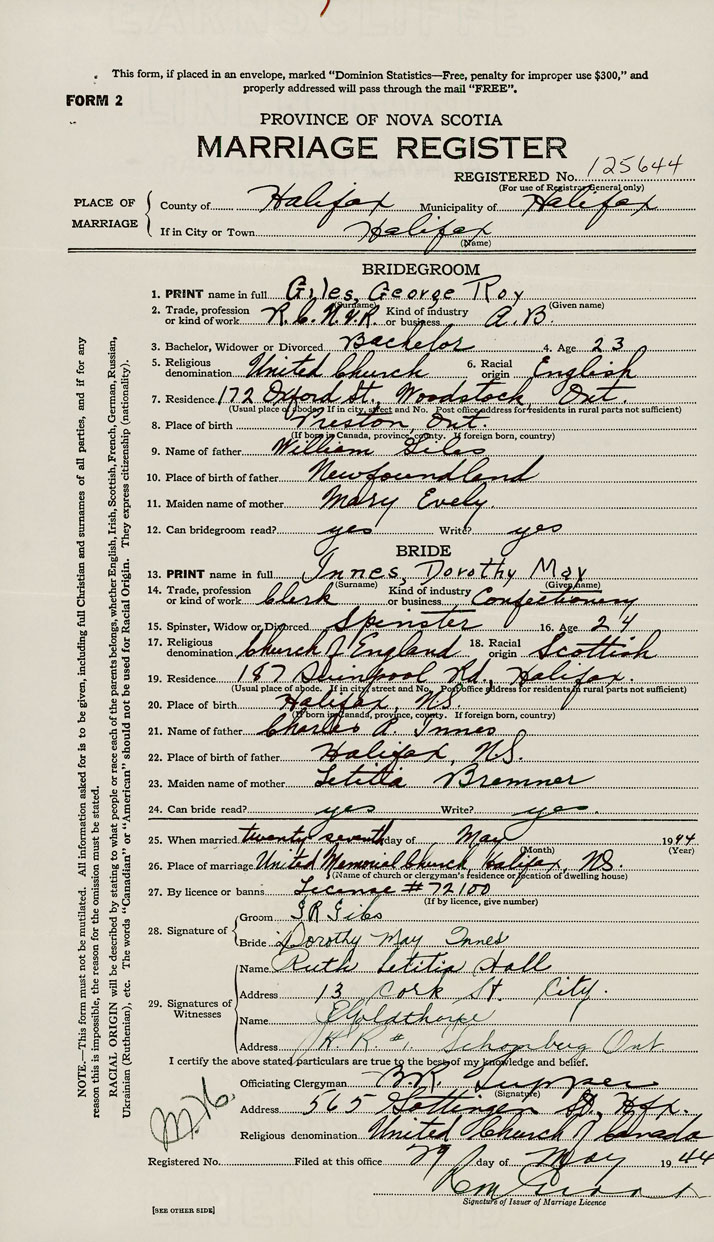 This form, if placed in an envelope, marked “Dominion Statistics—Free, penalty for improper use $300,” and
properly addressed will pass through the mail “FREE”.
FORM 2
PROVINCE OF NOVA SCOTIA
MARRIAGE REGISTER
REGISTERED No. 125644
(For use of Registrar General only)
PLACE OF MARRIAGE
County of Halifax Municipality of Halifax
If in City or Town Halifax
(Name)
BRIDEGROOM
1. PRINT name in full Giles, George Roy
(Surname) (Given name)
2. Trade, profession or kind of work R.C.N.V.R. Kind of industry or business A.B.
3. Bachelor, Widower or Divorced Bachelor 4. Age 23
5. Religious denomination United Church 6. Racial origin English
7. Residence 172 Oxford St., Woodstock, Ont.
(Usual place of abode. If in city, street and No. Post office address for residents in rural parts not sufficient)
8. Place of birth Preston, Ont.
(If born in Canada, province, county. If foreign born, country)
9. Name of father William Giles
10. Place of birth of father Newfoundland
11. Maiden name of mother Mary Evely.
12. Can bridegroom read? yes Write? yes
BRIDE
13. PRINT name in full Innes, Dorothy May
(Surname) (Given name)
14. Trade, profession or kind of work Clerk Kind of industry or business Confectionery
15. Spinster, Widow or Divorced Spinster 16. Age 24
17. Religious denomination Church of England 18. Racial origin Scottish
19. Residence 187 Quinpool Rd., Halifax.
(Usual place of abode. If in city, street and No. Post office address for residents in rural parts not sufficient)
20. Place of birth Halifax, N.S.
(If born in Canada, province, county. If foreign born, country)
21. Name of father Charles A. Innes
22. Place of birth of father Halifax, N.S.
23. Maiden name of mother Letitia Bremner
24. Can bride read? yes Write? yes.
25. When married twenty seventh day of May 1944
(Month) (Year)
26. Place of marriage United Memorial Church, Halifax, N.S.
(Name of church or clergyman's residence or location of dwelling house)
27. By licence or banns License # 72100
(If by licence, give number)
28. Signature of
Groom G R Giles
Bride Dorothy May Innes
29. Signatures of Witnesses
Name Ruth Letitia Hall
Address 13 Cork St. City.
Name Goldthorpe
Address R R #1, Schomberg Ont.
I certify the above stated particulars are true to the best of my knowledge and belief.
Officiating Clergyman Tupper
(Signature)
Address 565 Gottingen St., Hfx.
Religious denomination United Church of Canada
Registered No. Filed at this office 29 day of May 1944
Signature of Issuer of Marriage Licence
[SEE OTHER SIDE]
NOTE.—This form must not be mutilated. All information asked for is to be given, including full Christian and surnames of all parties, and if for any
reason this is impossible, the reason for the omission must be stated.
RACIAL ORIGIN will be described by stating to what people or race each of the parents belongs, whether English, Irish, Scottish, French, German, Russian,
Ukrainian (Ruthenian), etc. The words “Canadian” or “American” should not be used for Racial Origin. They express citizenship (nationality).